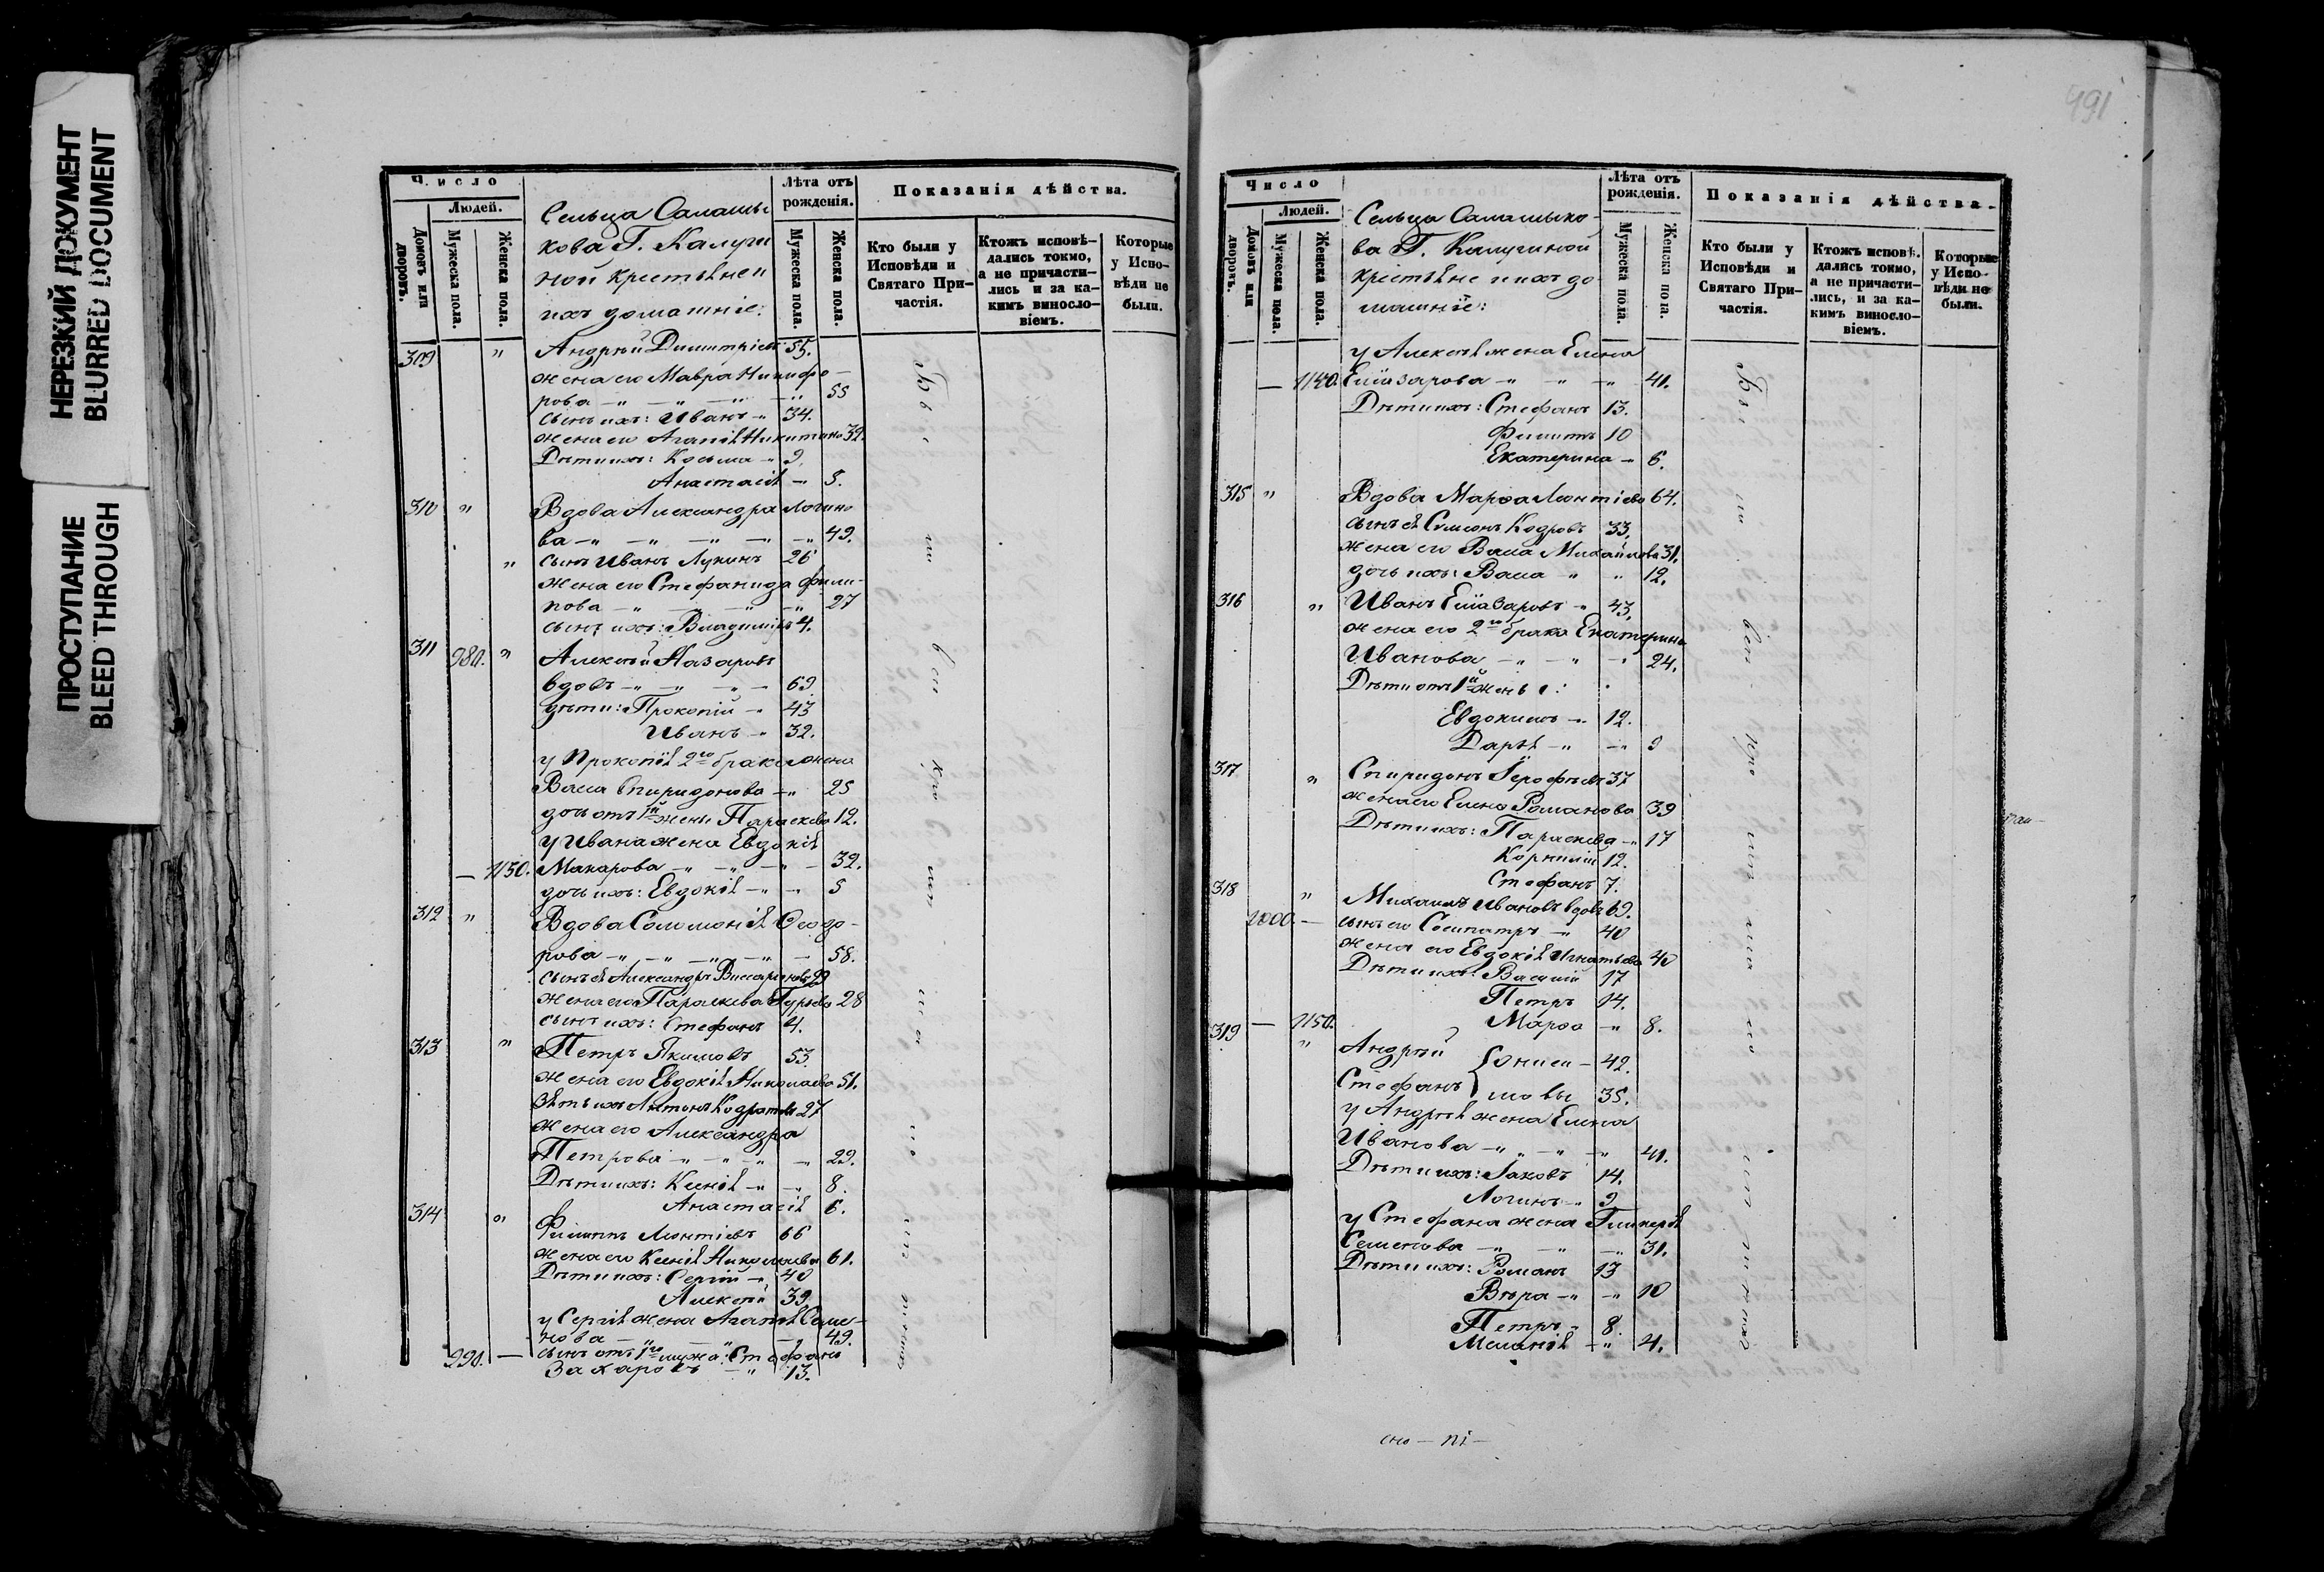 НЕРЕЗКИЙ ДОКУМЕНТ
BLURRED DOCUMENT
ПРОСТУПАНИЕ
BLEED THROUGH
Число
Людей.
Домовъ или дворовъ.
Мужеска пола.
Женска пола.
Сельца Саламы
кова Г. Калуги
ной крестьяне и
ихъ домашніе:
Лѣта отъ рожденія.
Мужеска пола.
Женска пола.
Показанія дѣйства.
Кто были у Исповѣди и Святаго Причастія.
Ктожъ исповѣдались токмо, а не причастились и за какимъ винословіемъ.
Которые у Исповѣди не были.
309 " Андрей Димитріевъ 55.
жена его Мавра Никифо-
рова 55
сынъ ихъ: Иванъ 34.
жена его Агапія Никитина 32.
Дѣти ихъ: Косьма 9.
Анастасія 5.
310 " Вдова Александра Логино
ва 49.
" сынъ Иванъ Лукинъ 26
жена его Стефанида Фили-
пова 27
сынъ ихъ: Владиміръ 4.
311 980. " Алексѣй Назаровъ
вдовъ 69
дѣти: Прокопій 43
Иванъ 32.
у Прокопія 2го брака жена
Васса Спиридонова 25
дочь отъ 1й жены Параскева 12.
у Ивана жена Евдокія
1130. Макарова 32.
дочь ихъ: Евдокія 5
312 " Вдова Соломонія Ѳеодо-
рова 58.
сынъ ея Александръ Виссаріоновъ 29
жена его Параскева Гурьева 28
сынъ ихъ: Стефанъ 4.
313 " Петръ Якимовъ 53.
жена его Евдокія Николаева 51.
Зять ихъ Антонъ Кодратовъ 27
жена его Александра
Петрова 29.
Дѣти ихъ: Ксенія 8.
Анастасія 6.
314 " Филиппъ Леонтіевъ 66
жена его Ксенія Николаева 61.
Дѣти ихъ: Сергій 40
Алексѣй 39
у Сергія жена Агапія Семе-
нова 49.
990. — сынъ отъ 1го мужа: Стефанъ
Захаровъ 13.
491
Число
Людей.
Домовъ или дворовъ.
Мужеска пола.
Женска пола.
Сельца Саламыко-
ва Г. Калугиной
крестьяне и ихъ до
машніе:
Лѣта отъ рожденія.
Мужеска пола.
Женска пола.
Показанія дѣйства.
Кто были у Исповѣди и Святаго Причастія.
Ктожъ исповѣдались токмо, а не причастились, и за какимъ винословіемъ.
Которые у Исповѣди не были.
у Алексѣя жена Елена
— 1140. Елизарова 41.
Дѣти ихъ: Стефанъ 13.
Филиппъ 10
Екатерина 6.
315 " Вдова Марѳа Леонтіева 64.
сынъ ея Симеонъ Кодровъ 33,
жена его Васса Михайлова 31.
дочь ихъ: Васса 12.
316 " Иванъ Елизаровъ 43,
жена его 2го брака Екатерина
Иванова 24.
Дѣти отъ 1й жены:
Евдокимъ 12.
Дарья 9
317 " Спиридонъ Іерофѣевъ 37
жена его Елена Романова 39
Дѣти ихъ: Параскева 17
Корнилій 12.
Стефанъ 7.
318 " Михаилъ Ивановъ вдовъ 69.
1000. — сынъ его Сосипатръ 40
жена его Евдокія Игнатьева 40
Дѣти ихъ: Василій 17
Петръ 14.
— 1150. Марѳа 8.
319 " Андрей
Стефанъ } Ониси- 42.
мовы 35.
у Андрея жена Елена
Иванова 41.
Дѣти ихъ: Іаковъ 14.
Логинъ 9
у Стефана жена Гликерія
Семенова 31.
Дѣти ихъ: Романъ 13
Вѣра 10
Петръ 8.
Меланія 4.